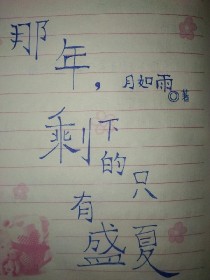 那年，
月如雨◎著
剩下的只有盛夏